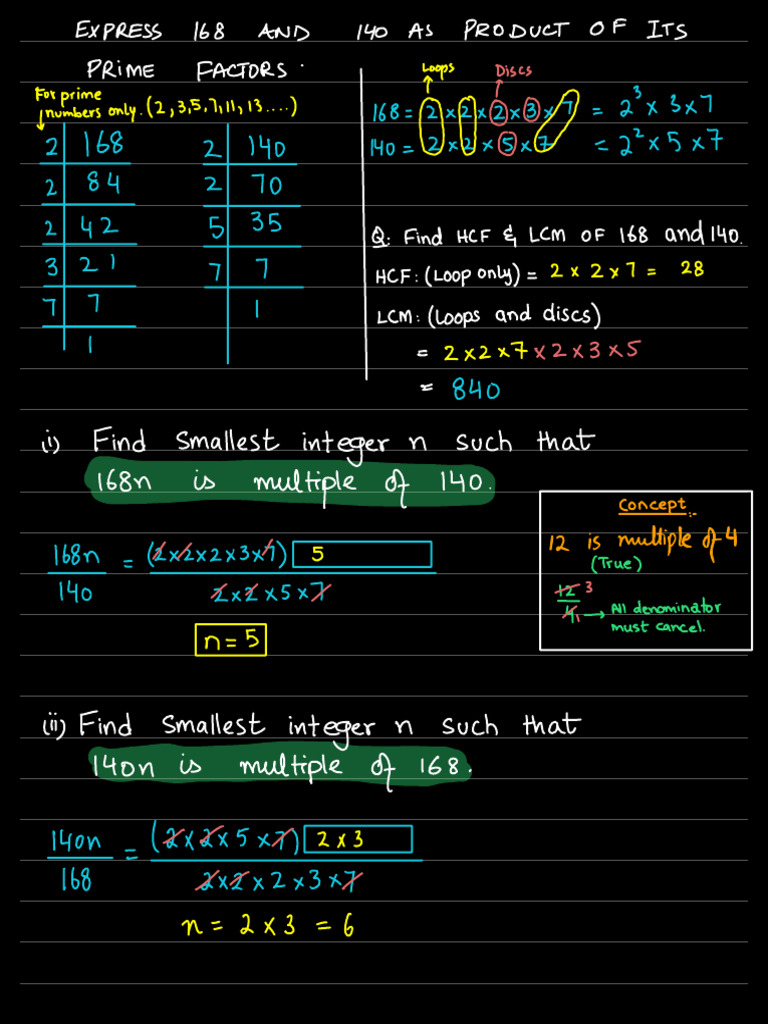 EXPRESS 168 AND 140 AS PRODUCT OF ITS
PRIME FACTORS.
For prime
numbers only. (2,3,5,7,11,13....)
2 | 168
2 | 84
2 | 42
3 | 21
7 | 7
1
2 | 140
2 | 70
5 | 35
7 | 7
1
Loops Discs
168 = 2 × 2 × 2 × 3 × 7 = 2³ × 3 × 7
140 = 2 × 2 × 5 × 7 = 2² × 5 × 7
Q: Find HCF & LCM OF 168 and 140.
HCF: (Loop only) = 2 × 2 × 7 = 28
LCM: (Loops and discs)
= 2 × 2 × 7 × 2 × 3 × 5
= 840
(i) Find smallest integer n such that
168n is multiple of 140.
168n/140 = (2×2×2×3×7) 5 / 2×2×5×7
n = 5
Concept:-
12 is multiple of 4
(True)
12 3
4 1 → All denominator
must cancel.
(ii) Find smallest integer n such that
140n is multiple of 168.
140n/168 = (2×2×5×7) 2×3 / 2×2×2×3×7
n = 2 × 3 = 6